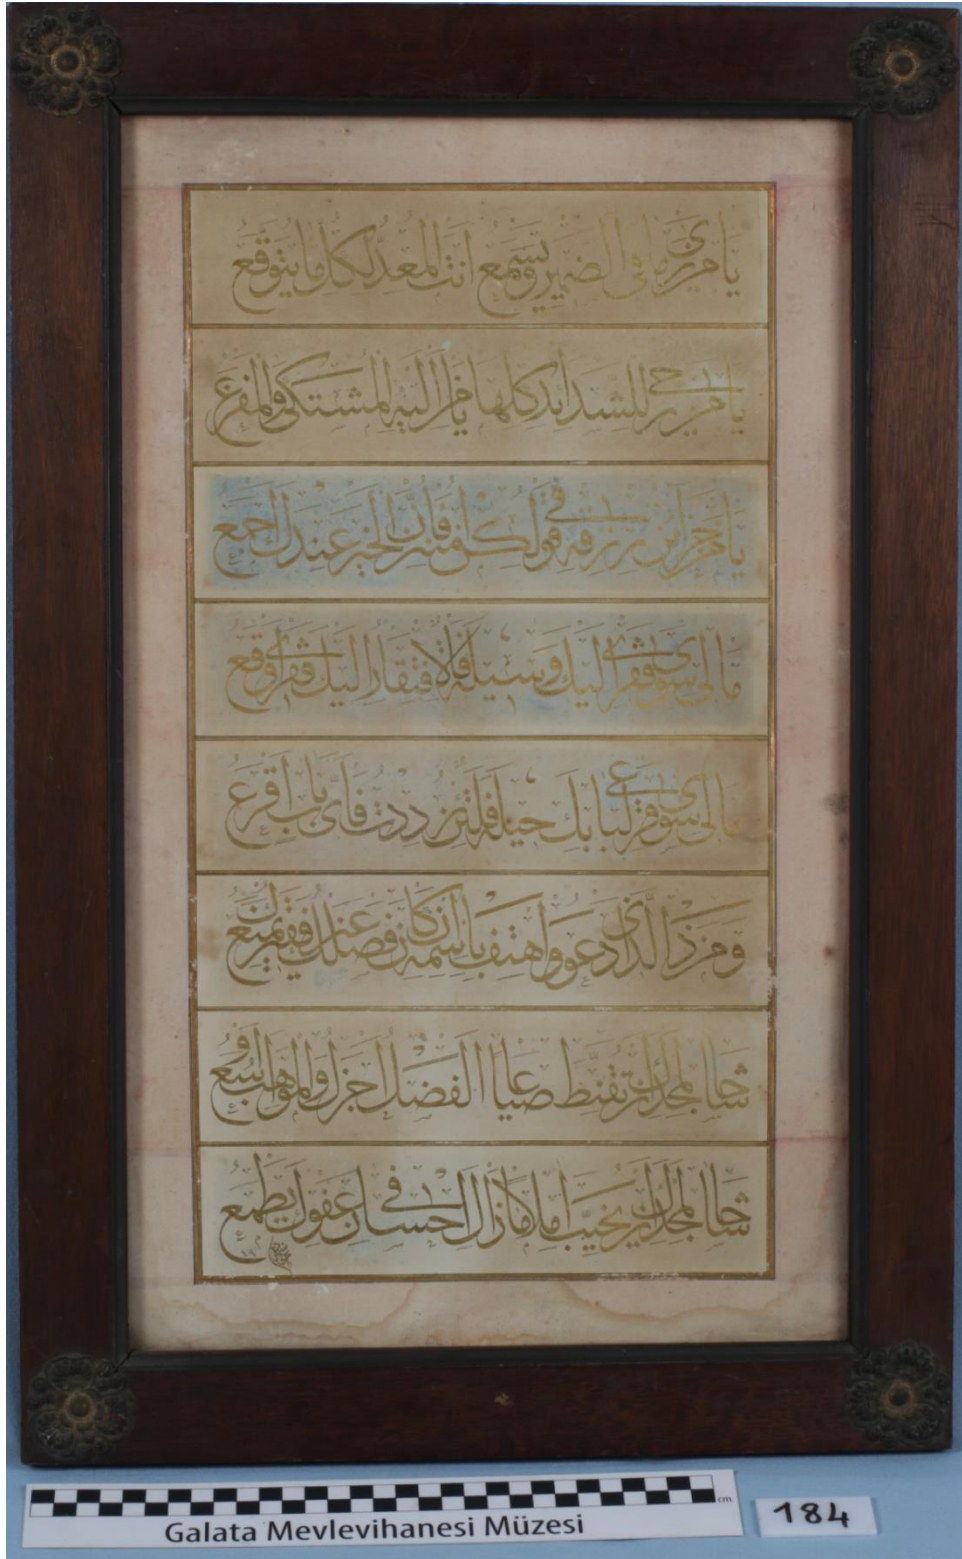 يا من يرى ما في الضمير ويسمع انت المعد لكل ما يتوقع
يا من يرجى للشدائد كلها يا من اليه المشتكى والمفزع
يا من خزائن رزقه في قول كن امنن فان الخير عندك اجمع
مالي سوى فقري اليك وسيلة فبالافتقار اليك فقري
مالي سوى قرعي لبابك حيلة فلئن رددت فاى باب اقرع
ومن ذا الذي ادعو واهتف باسمه ان كان فضلك عن فقير يمنع
حاشا لمجدك ان تقنط عاصيا الفضل اجزل والمواهب اوسع
حاشا لمجدك ان يخيب املا ما زال في احسان عفوك يطمع
Galata Mevlevihanesi Müzesi
cm
184